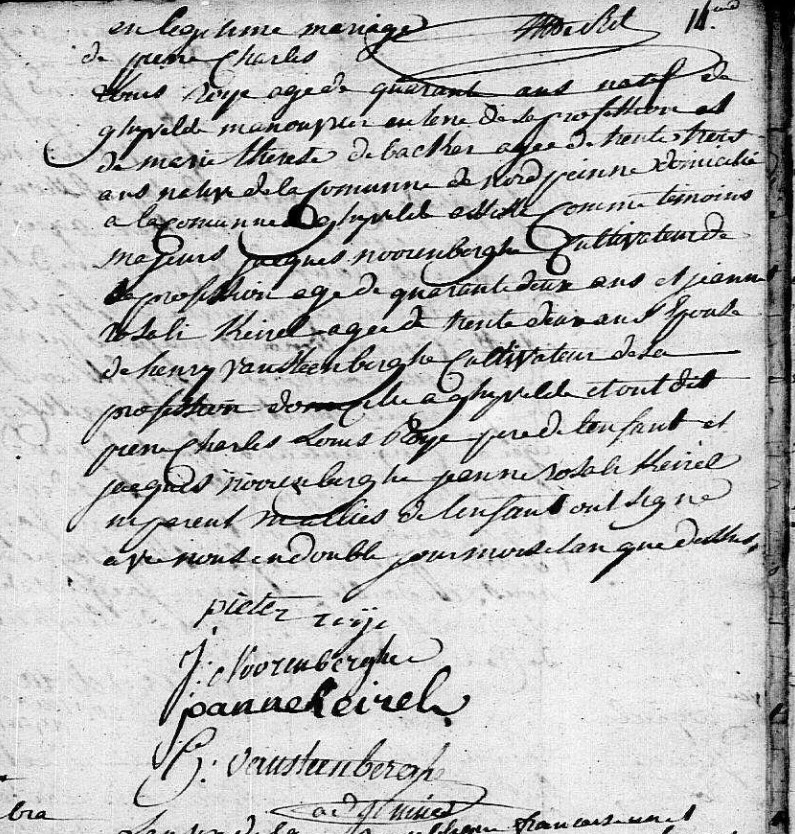 en legitime mariage
de pierre Charles
Louis Roÿe age de quarant ans natif de
ghyvelde manouvrier en terre de sa profession et
de marie therese debacker agee de trente trois
ans native de la Comunne de domicilié
a la Comunne ghyvelde Comme temoins
majeurs jacques noorenberghe Cultivateur de
sa profession age de quarante deux ans et jeanne
rosali Keirel agee de trente deux ans Epouse
de henry vansteenberghe Cultivateur de sa
profession domicilie a ghyvelde et ont dit
pierre Charles Louis Roÿe pere de lenfant et
jacques noorenberghe jeanne rosali Keirel
ni parent ni allies de lenfant ont signe
avec nous en double jour mois et an que dessus
pieter roije
J: Noorenberghe
joanna Keirel
vansteenberghe
bra
Lan de la francaise